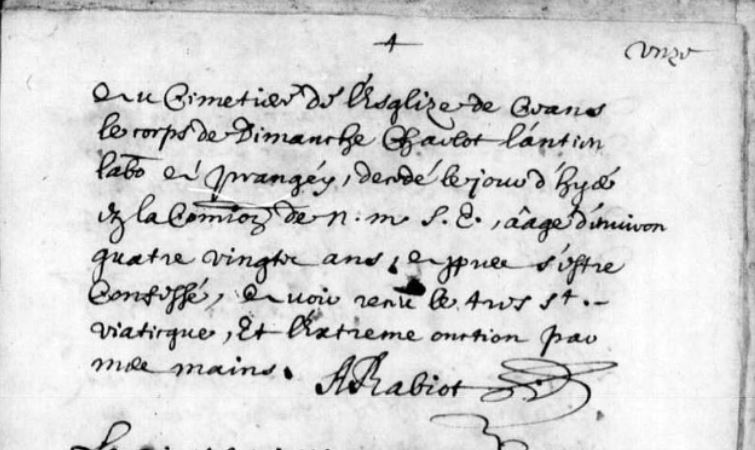 4
unze
au Cimetiere de l'Esglize de Crans
le corps de Dimanche Charlot l'antien
labo de Prangey, decedé le jour d'hyer
en la Comion de n. m. S. E., aagé d'environ
quatre vingtz ans, apres s'estre
Confessé, avoir receu le tres st.
viaticque, Et l'Extreme onction par
mes mains. ARabiot